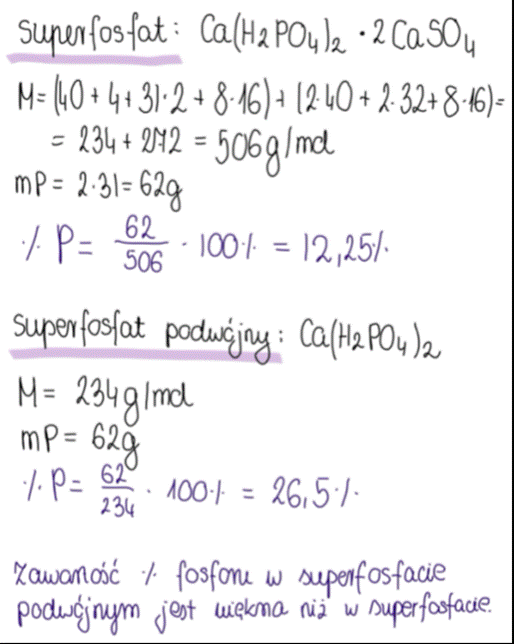 superfosfat: Ca(H2PO4)2 · 2CaSO4
M= (40 + 4 + 31·2 + 8·16) + (2·40 + 2·32 + 8·16)=
= 234 + 272 = 506g/mol
mP= 2·31= 62g
% P= 62/506 · 100% = 12,25%
superfosfat podwójny: Ca(H2PO4)2
M= 234g/mol
mP= 62g
% P= 62/234 · 100% = 26,5%
Zawartość % fosforu w superfosfacie
podwójnym jest większa niż w superfosfacie.